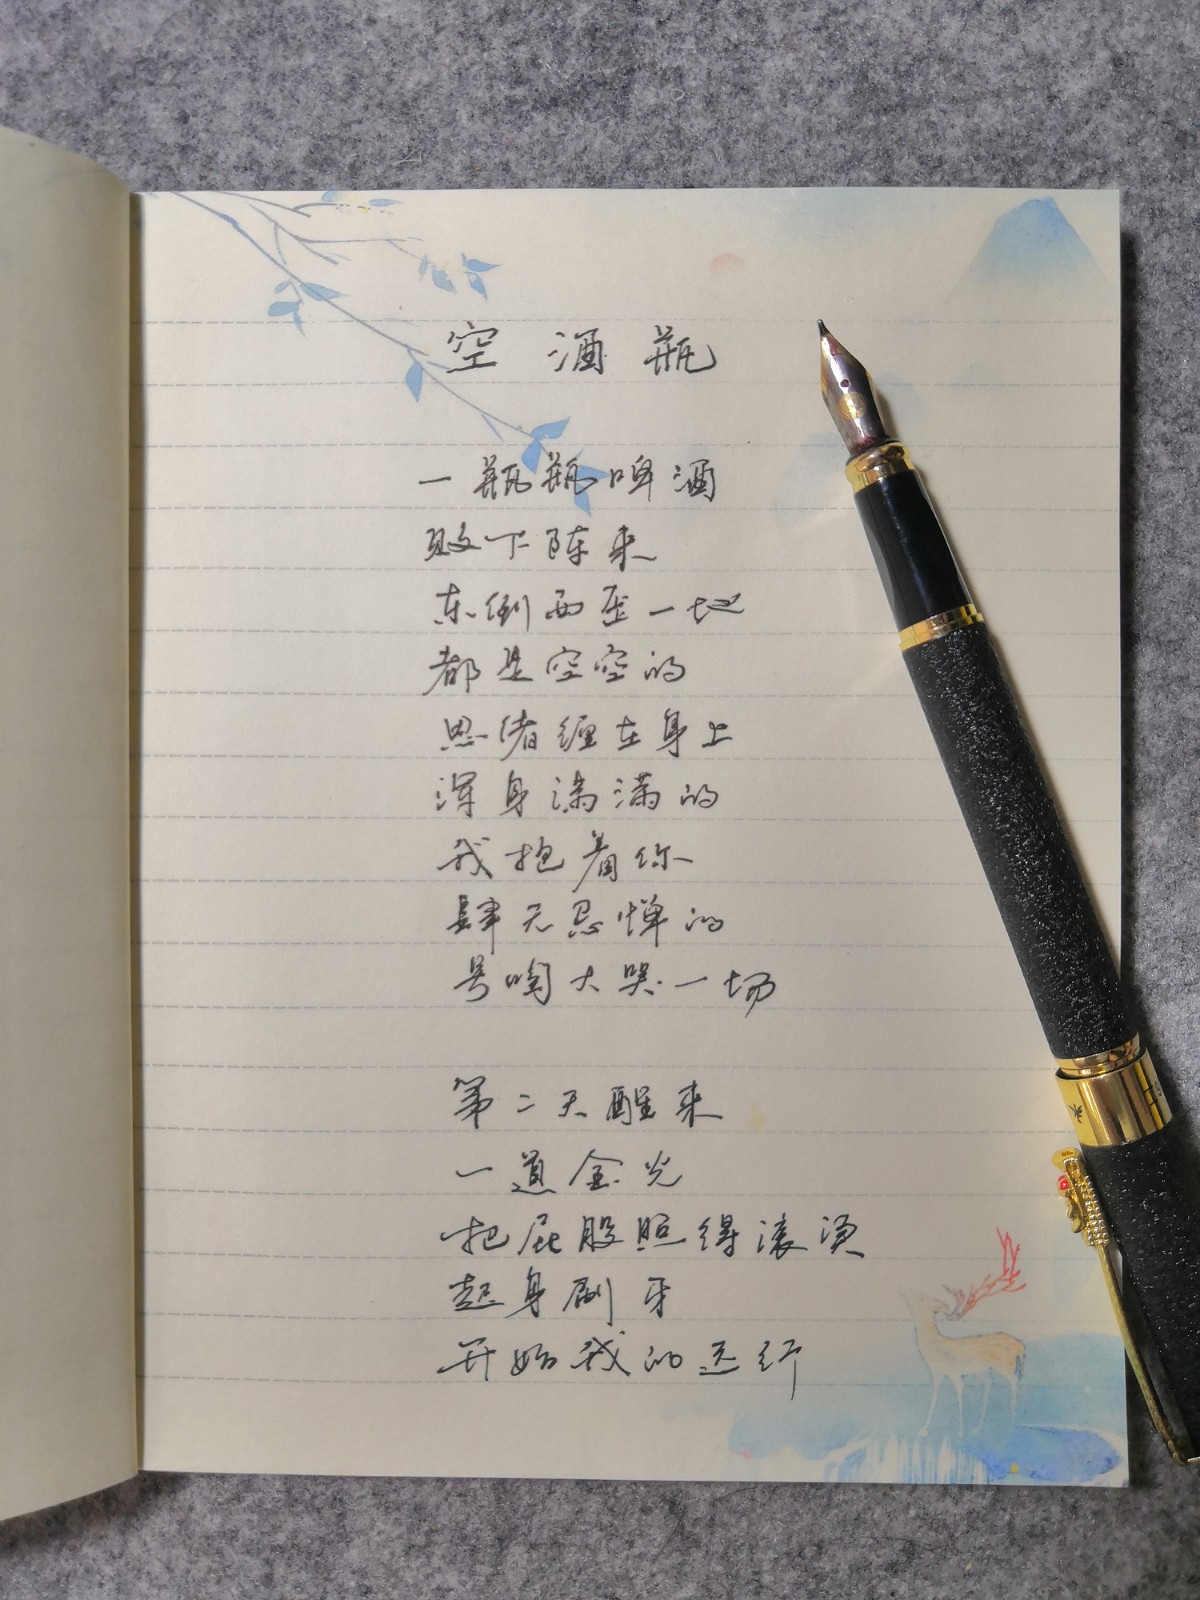 空酒瓶
一瓶瓶啤酒
败下阵来
东倒西歪一地
都是空空的
思绪缠在身上
浑身满满的
我抱着你
肆无忌惮的
号啕大哭一场
第二天醒来
一道金光
把屁股照得滚烫
起身刷牙
开始我的远行